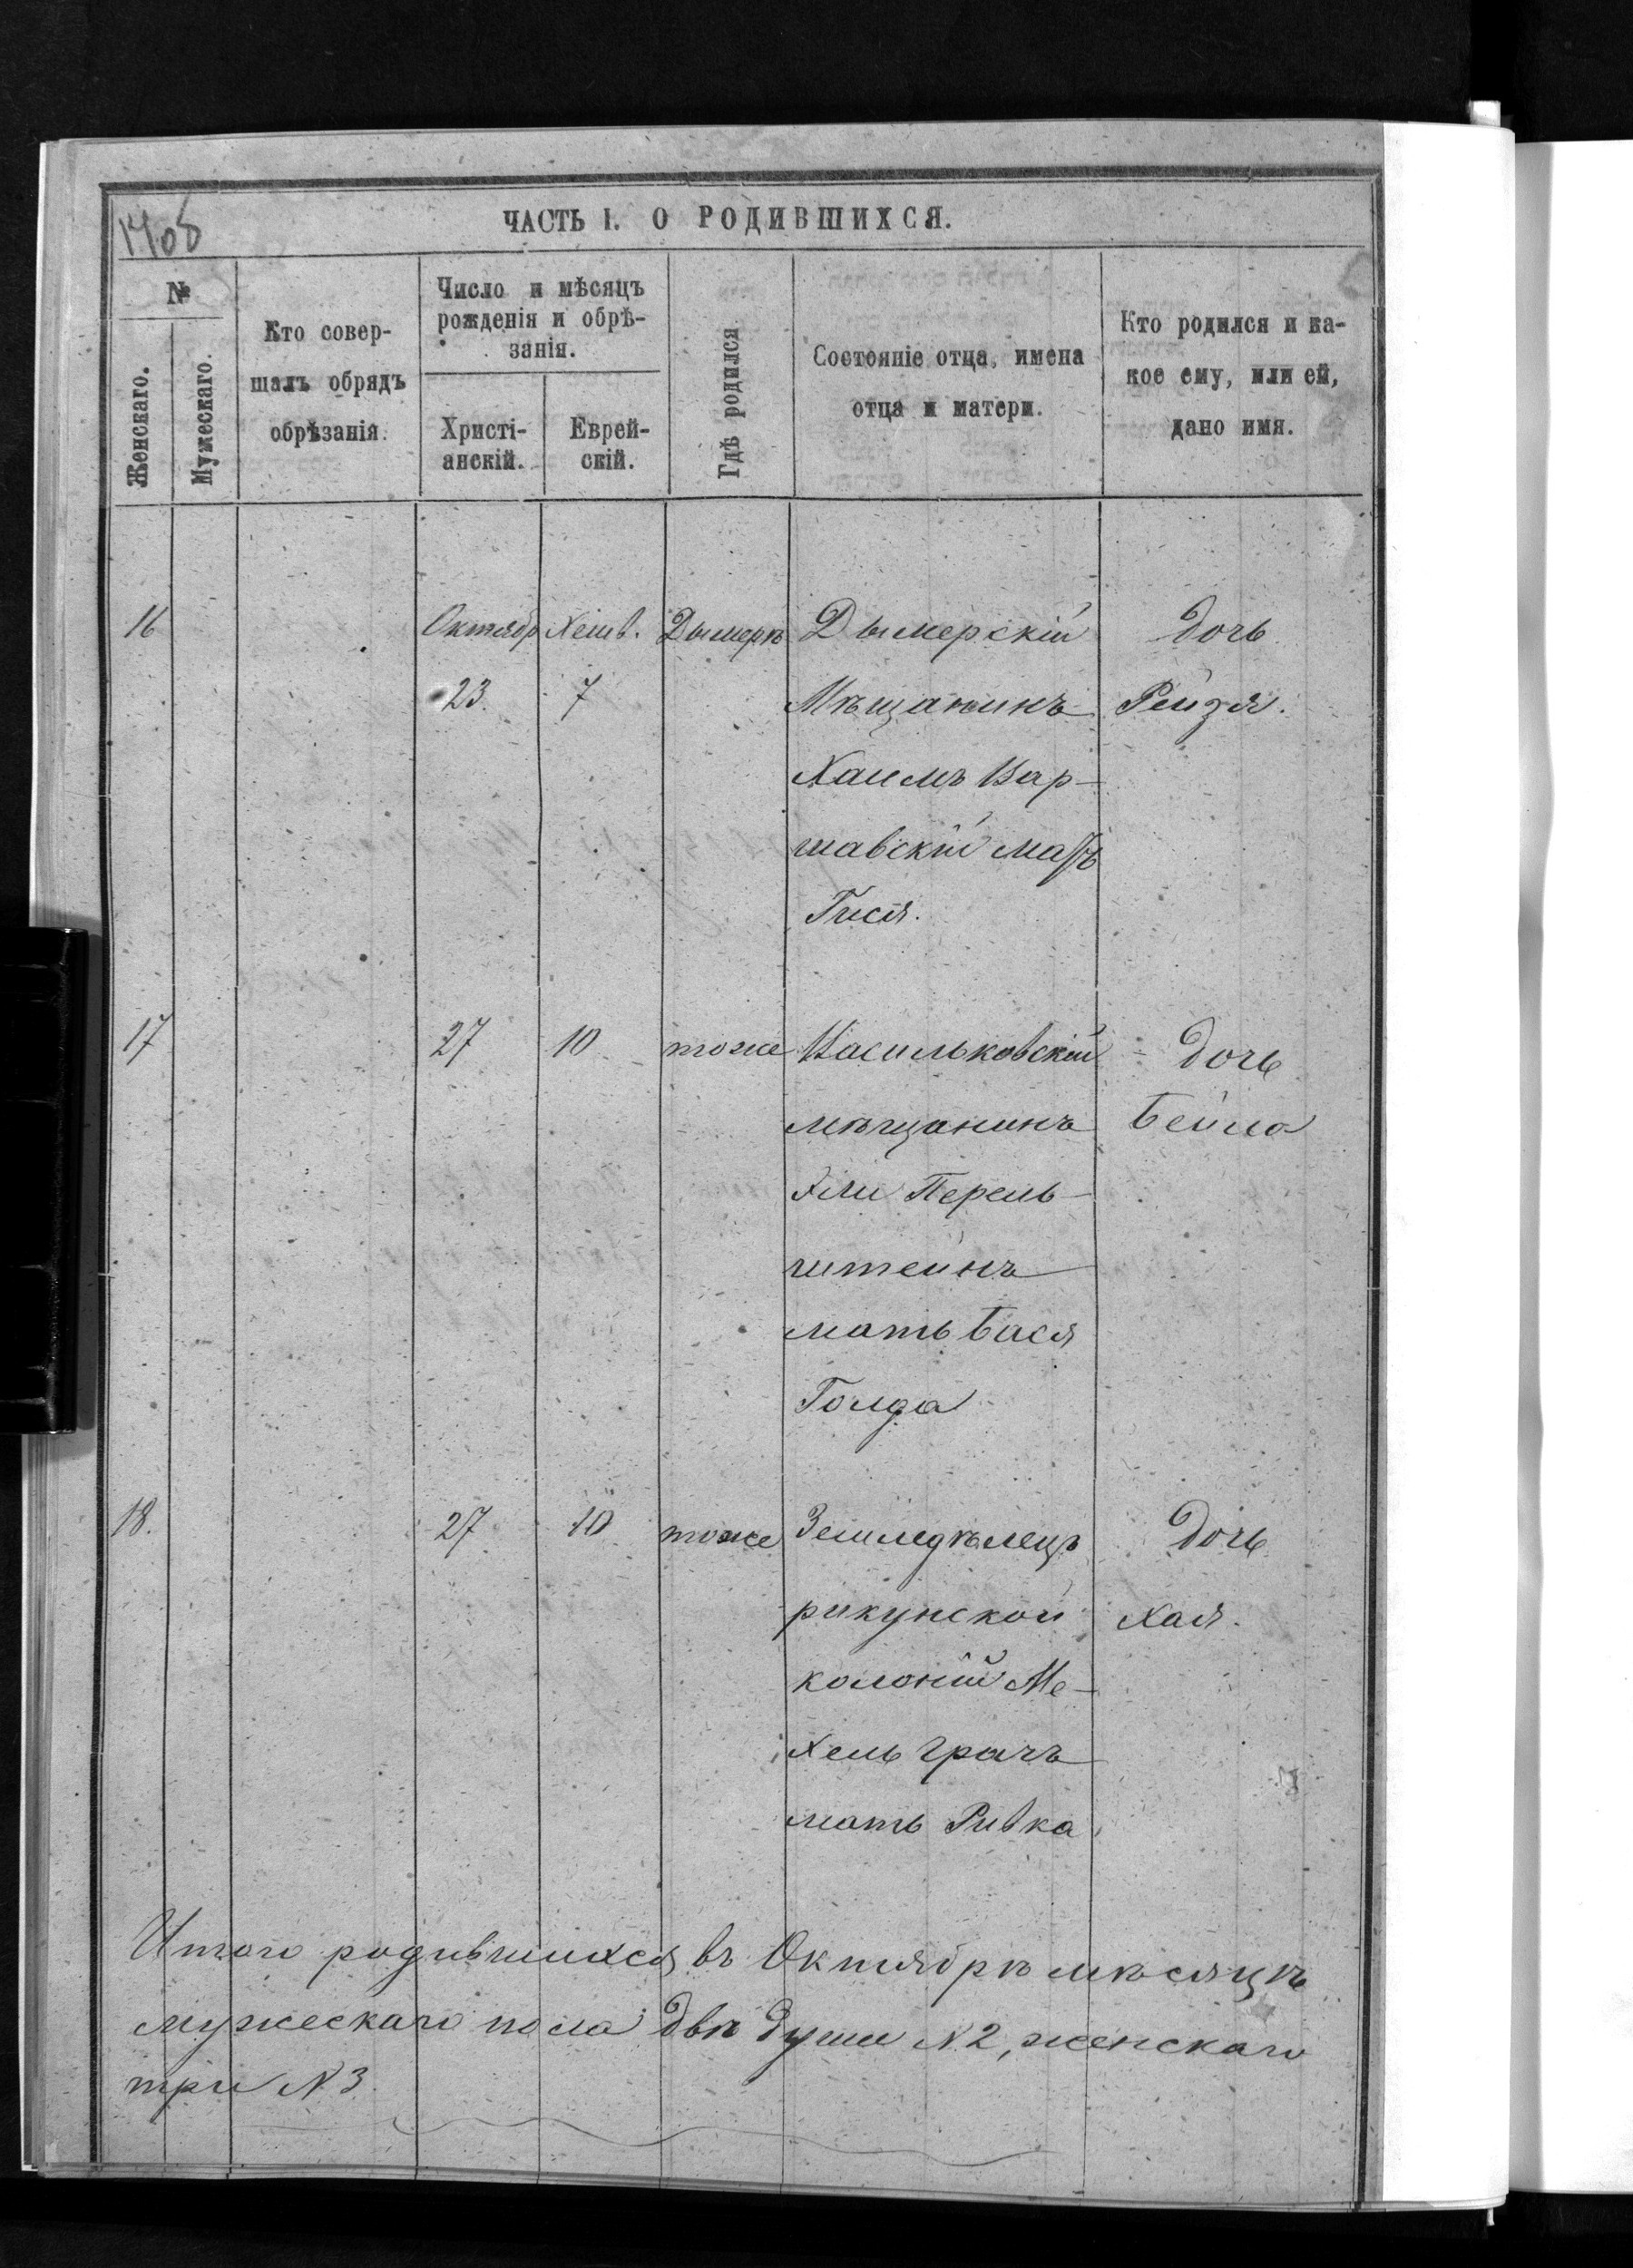 140б
ЧАСТЬ I. О РОДИВШИХСЯ.
№
Женскаго.
Мужескаго.
Кто совер-
шалъ обрядъ
обрѣзанія.
Число и мѣсяцъ
рожденія и обрѣ-
занія.
Христі-
анскій.
Еврей-
скій.
Гдѣ родился
Состояніе отца, имена
отца и матери.
Кто родился и ка-
кое ему, или ей,
дано имя.
16 Октябр Хешв. Дымеръ Дымерскій Дочь
23. 7 Мѣщанинъ Рейзя.
Хаимъ Вар-
шавскій мать
Гися.
17 27 10 тоже Васильковскій Дочь
мѣщанинъ Бейла
Эли Перель-
штейнъ
мать Бася
Голда
18. 27 10 тоже Земледѣлецъ Дочь
рикунской Хая.
колоніи Ме-
хель Грачъ
мать Ривка
Итого родившихся въ Октябрѣ мѣсяцѣ
мужескаго пола двѣ души №2, женскаго
три №3.